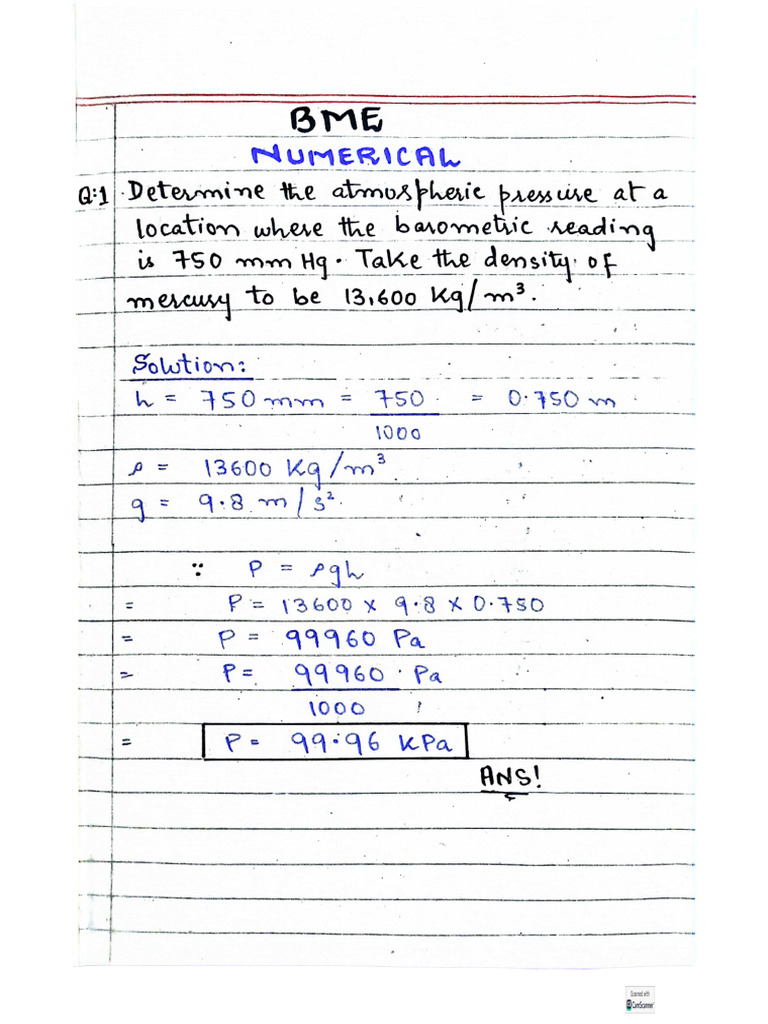 BME
NUMERICAL
Q:1 Determine the atmospheric pressure at a
location where the barometric reading
is 750 mm Hg. Take the density of
mercury to be 13,600 Kg/m³.
Solution:
h = 750 mm = 750 = 0.750 m
1000
ρ = 13600 Kg/m³
g = 9.8 m/s²
∵ P = ρgh
= P = 13600 x 9.8 x 0.750
= P = 99960 Pa
= P = 99960 Pa
1000
= P = 99.96 KPa
ANS!
Scanned with
CamScanner